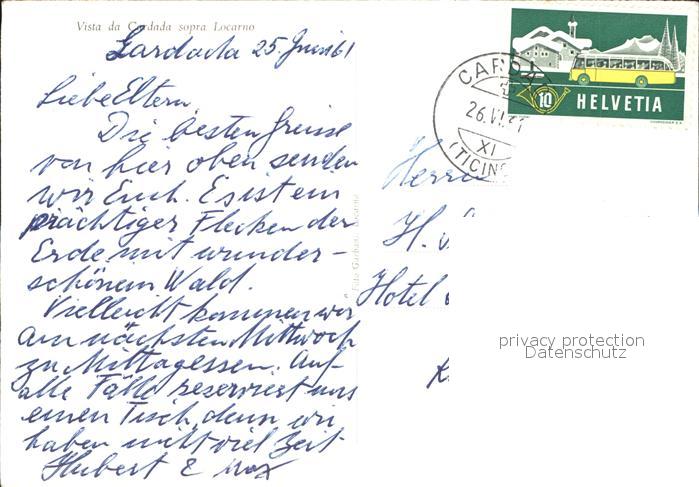 Vista da Cardada sopra Locarno
Cardada 25 Juni 61
Liebe Eltern,
Die besten Grüsse
von hier oben senden
wir Euch. Es ist ein
prächtiger Flecken der
Erde mit wunder-
schönem Wald.
Vielleicht kommen wir
am nächsten Mittwoch
zu Mittagessen. Auf
alle Fälle reserviert uns
einen Tisch, denn wir
haben nicht viel Zeit
Hubert & Max
Foto Garbani, Locarno
CARDA
26.VI.61
XI
(TICIN
10 HELVETIA
COURVOISIER S.A.
Herrn
H.
Hotel
K
privacy protection
Datenschutz